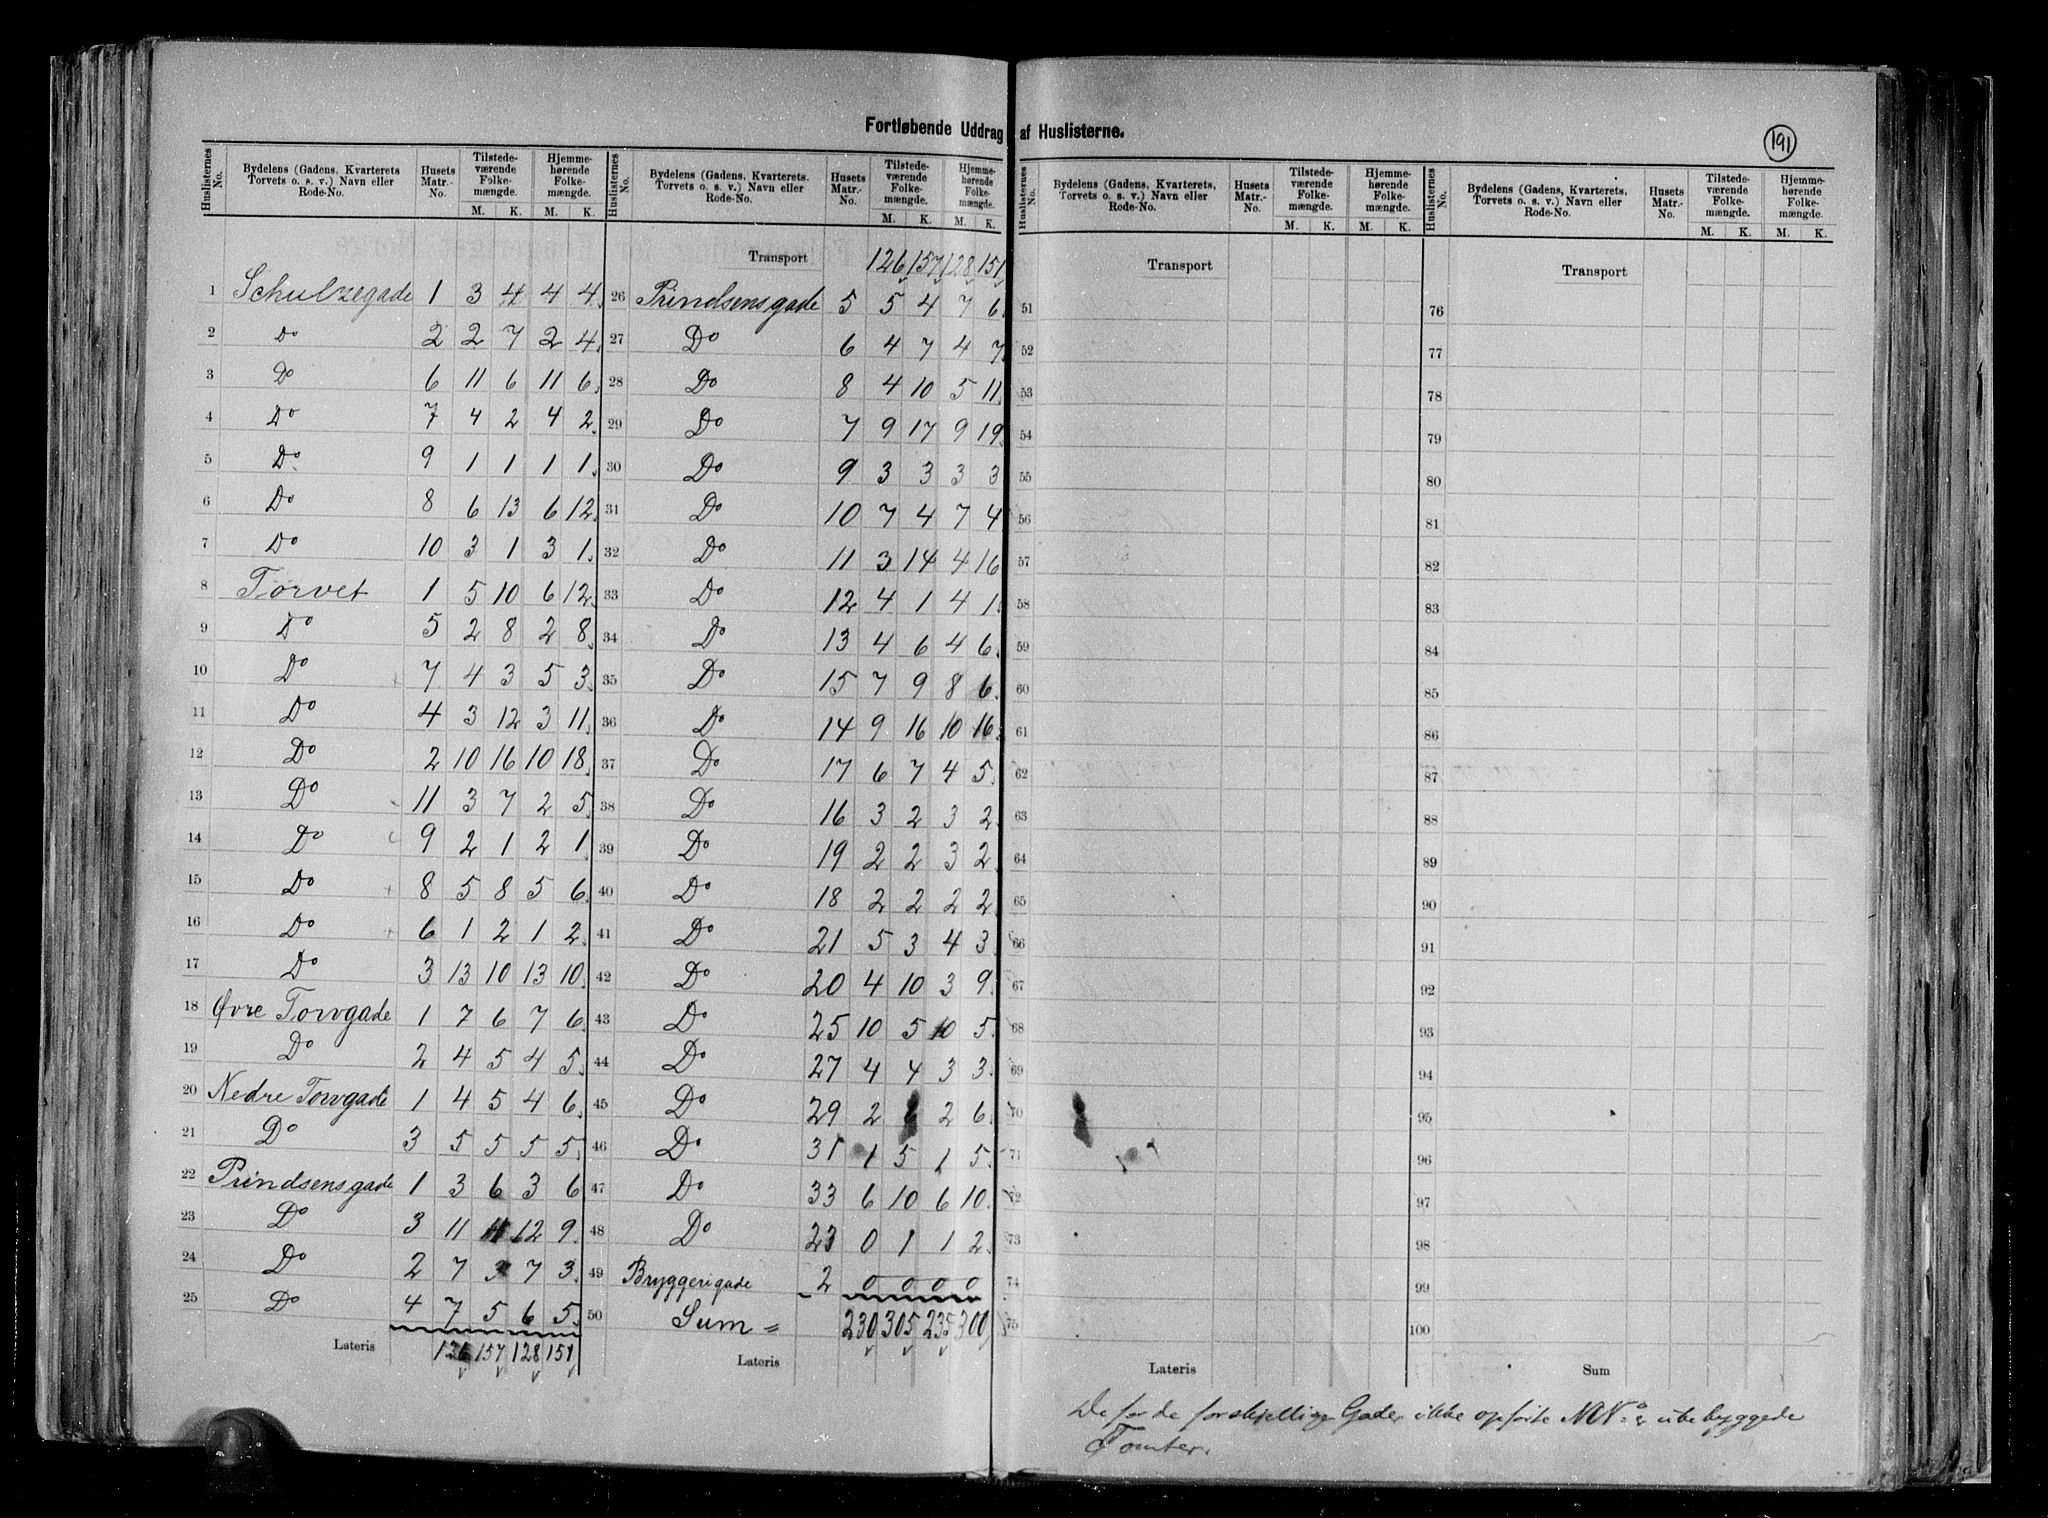 Fortløbende Uddrag af Huslisterne.
191
Huslisternes No. Bydelens (Gadens, Kvarterets Torvets o. s. v.) Navn eller Rode-No. Husets Matr.-No. Tilstedeværende Folkemængde. M. K. Hjemmehørende Folkemængde. M. K.
1 Schulzegade 1 3 4 4 4
2 Do 2 2 7 2 4
3 Do 6 11 6 11 6
4 Do 7 4 2 4 2
5 Do 9 1 1 1 1
6 Do 8 6 13 6 12
7 Do 10 3 1 3 1
8 Torvet 1 5 10 6 12
9 Do 5 2 8 2 8
10 Do 7 4 3 5 3
11 Do 4 3 12 3 11
12 Do 2 10 16 10 18
13 Do 11 3 7 2 5
14 Do 9 2 1 2 1
15 Do 8 5 8 5 6
16 Do 6 1 2 1 2
17 Do 3 13 10 13 10
18 Øvre Torvgade 1 7 6 7 6
19 Do 2 4 5 4 5
20 Nedre Torvgade 1 4 5 4 6
21 Do 3 5 5 5 5
22 Prindsensgade 1 3 6 3 6
23 Do 3 11 11 12 9
24 Do 2 7 3 7 3
25 Do 4 7 5 6 5
Lateris 126 157 128 151
Huslisternes No. Bydelens (Gadens, Kvarterets. Torvets o. s. v.) Navn eller Rode-No. Husets Matr.-No. Tilstedeværende Folkemængde. M. K. Hjemmehørende Folkemængde. M. K.
Transport 126 157 128 151
26 Prindsensgade 5 5 4 7 6
27 Do 6 4 7 4 7
28 Do 8 4 10 5 11
29 Do 7 9 17 9 19
30 Do 9 3 3 3 3
31 Do 10 7 4 7 4
32 Do 11 3 14 4 16
33 Do 12 4 1 4 1
34 Do 13 4 6 4 6
35 Do 15 7 9 8 6
36 Do 14 9 16 10 16
37 Do 17 6 7 4 5
38 Do 16 3 2 3 2
39 Do 19 2 2 3 2
40 Do 18 2 2 2 2
41 Do 21 5 3 4 3
42 Do 20 4 10 3 9
43 Do 25 10 5 10 5
44 Do 27 4 4 3 3
45 Do 29 2 6 2 6
46 Do 31 1 5 1 5
47 Do 33 6 10 6 10
48 Do 23 0 1 1 2
49 Bryggerigade 2 0 0 0 0
50 Sum = 230 305 235 300
Lateris
Huslisternes No. Bydelens (Gadens, Kvarterets, Torvets o. s. v.) Navn eller Rode-No. Husets Matr.-No. Tilstedeværende Folkemængde. M. K. Hjemmehørende Folkemængde. M. K.
Transport
51
52
53
54
55
56
57
58
59
60
61
62
63
64
65
66
67
68
69
70
71
72
73
74
75
Lateris
Huslisternes No. Bydelens (Gadens, Kvarterets, Torvets o. s. v.) Navn eller Rode-No. Husets Matr.-No. Tilstedeværende Folkemængde. M. K. Hjemmehørende Folkemængde. M. K.
Transport
76
77
78
79
80
81
82
83
84
85
86
87
88
89
90
91
92
93
94
95
96
97
98
99
100
Sum
De for de forskjellige Gader ikke opførte NNo er ubebyggede
Tomter.